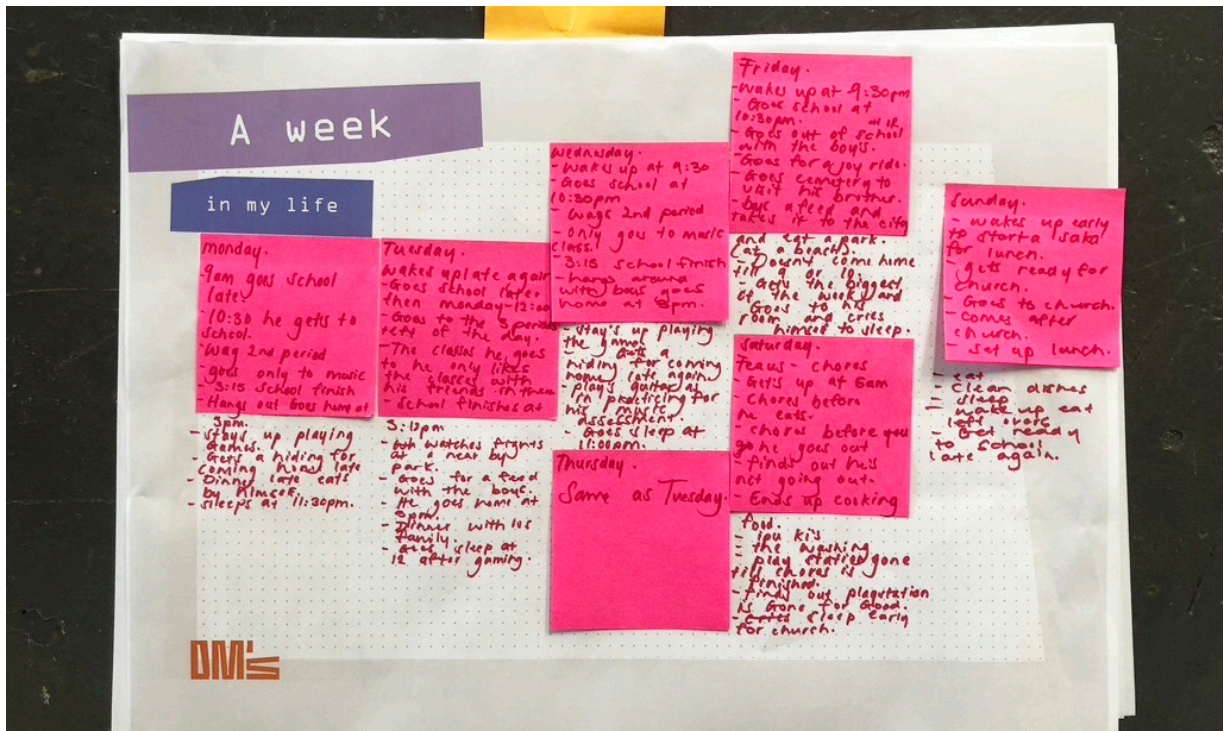 A week
in my life
monday.
9am goes school
late.
- 10:30 he gets to
school.
- wag 2nd period
- goes only to music
- 3:15 school finish
- Hangs out Goes home at
8pm.
- stays up playing
Games.
- Gets a hiding for
coming home late
- Dinner late eats
by himself.
- sleeps at 11:30pm.
Tuesday.
wakes up late again
- Goes school later
then monday 12:00
- Goes to the 3 period
rest of the day.
- The classes he goes
to he only likes
the classes with
his friends in them
- School finishes at
3:15pm
- watches fights
at a near by
park.
- Goes for a feed
with the boys.
- He goes home at
8pm.
- Dinner with his
family.
- Goes sleep at
12 after gaming.
wednesday.
- Wakes up at 9:30
- Goes school at
10:30pm
- Wags 2nd period
- only goes to music
class.
- 3:15 school finish
- hangs around
with boys goes
home at 8pm.
- Stay's up playing
the game.
- Gets a
hiding for coming
home late again
- plays guitar as
in practicing for
his music
assessment.
- Goes sleep at
11:00pm.
Thursday.
Same as Tuesday.
Friday.
- Wakes up at 9:30pm
- Goes school at
10:30pm.
- Goes out of school
with the boys.
- Goes for a joy ride.
- Goes cemetery to
visit his brother.
- buys a feed and
takes it to the city
and eat a park.
(at a beach).
- Doesn't come home
till 9 or 10.
- Gets the biggest
of the week and
- Goes to his
room and cries
himself to sleep.
Saturday.
Feaus - chores
- Gets up at 6am
- Chores before
he eats.
- chores before you
go he goes out
- finds out he's
not going out.
- Ends up cooking
food.
- Ipu ki's
- the washing
- play station gone
till chores is
finished.
- finds out playstation
is Gone for Good.
- sleep early
for church.
Sunday.
- wakes up early
to start a saka
for lunch.
- gets ready for
church.
- Goes to church.
- Comes after
church.
- Set up lunch.
- eat
- Clean dishes
- sleep
- wake up eat
left overs
- Get ready
to school
late again.
DM's